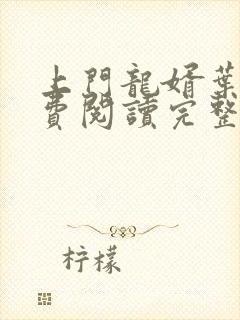 上門龍婿葉
費閱讀完整
柠檬